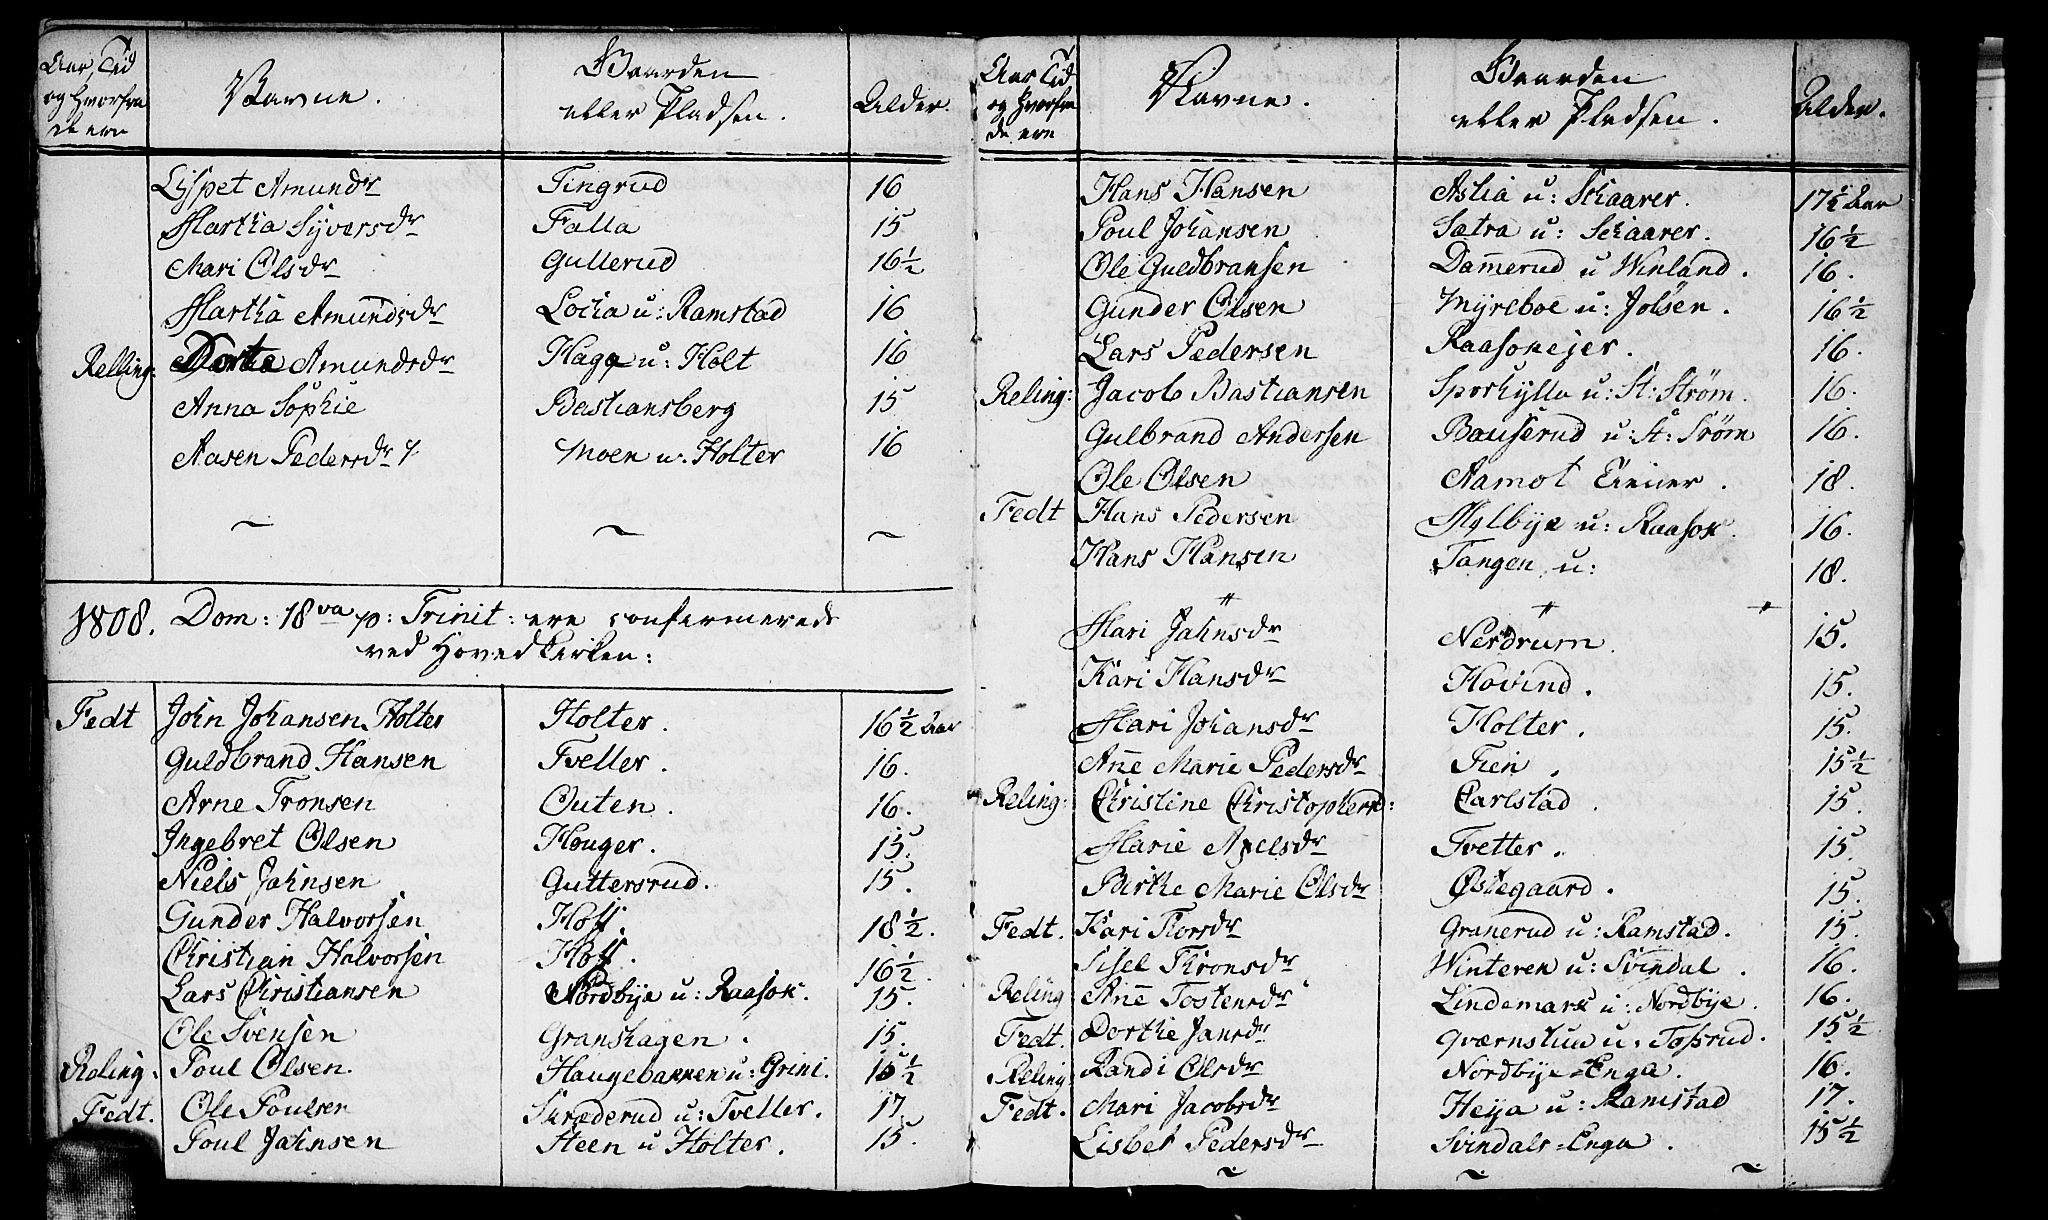 Aar, Tid og Hvorfra de ere | Navne. | Gaarden eller Pladsen. | Alder.
Lispet Amundsdr | Tingrud | 16
Martha Syversdr | Falla | 15
Mari Olsdr | Gullerud | 16½
Martha Amundsdr | Locka u: Ramstad | 16
Relling: Dorte Amundsdr | Haga u: Holt | 16
Anna Sophie | Bastiansberg | 15
Aasen Pedersdr | Moen u. Holter | 16
1808. Dom: 18va p: Trinit: ere confermerede
ved Hovedkirken:
Fedt John Johansen Holter | Holter. | 16½ Aar
Guldbrand Hansen | Tveller. | 16.
Arne Tronsen | Outen. | 16.
Ingebret Olsen | Houger. | 15.
Niels Jahnsen | Guttersrud. | 15.
Gunder Halvorsen | Hoff. | 18½.
Christian Halvorsen | Hoff. | 16½.
Lars Christiansen | Nordbye u: Raasok. | 15.
Ole Svensen | Granshagen. | 15.
Reling: Poul Olsen. | Haugebakken u: Grini. | 16½
Fedt. Ole Poulsen | Skræderud u: Tveller. | 17.
Poul Jahnsen | Steen u Holter. | 15.
Aar Tid og Hvorfra de ere | Navne. | Gaarden eller Pladsen. | Alder.
Hans Hansen | Aslia u: Skaarer. | 17½ Aar
Poul Johansen | Sætra u: Skaarer. | 16½
Ole Guldbransen | Dam̅erud u Winland. | 16.
Gunder Olsen | Myreboe u: Jølsen. | 16½
Lars Pedersen | Raasokejer. | 16.
Reling: Jacob Bastiansen | Sporhylla u: St: Strøm. | 16.
Gulbrand Andersen | Bauserud u: St: Strøm | 16.
Ole Olsen | Aamot Eiener. | 18.
Fedt Hans Pedersen | Mylbye u: Raasok. | 16.
Hans Hansen | Tangen u: | 18.
Mari Jahnsdr | Nerdrum. | 15.
Kari Hansdr | Hovind. | 15.
Mari Johansdr | Holter. | 15.
An̅e Marie Pedersdr | Tien. | 15½
Reling: Christine Christophersdr: | Carlstad. | 15.
Marie Axelsdr | Tvetter. | 15.
Birthe Marie Olsdr | Østegaard. | 15.
Fedt. Kari Torsdr | Granerud u: Ramstad. | 15.
Sisel Thronsdr | Winteren u: Svindal. | 16.
Reling An̅e Tostensdr | Lindemark u: Nordbye. | 16.
Fedt. Dorthe Jansdr | Qværnstuu u: Tossrud. | 15½
Reling: Randi Olsdr | Nordbye-Enga. | 16.
Fedt. Mari Jacobsdr | Heya u: Ramstad | 17.
Lisbet Pedersdr | Svindals-Enga. | 15½